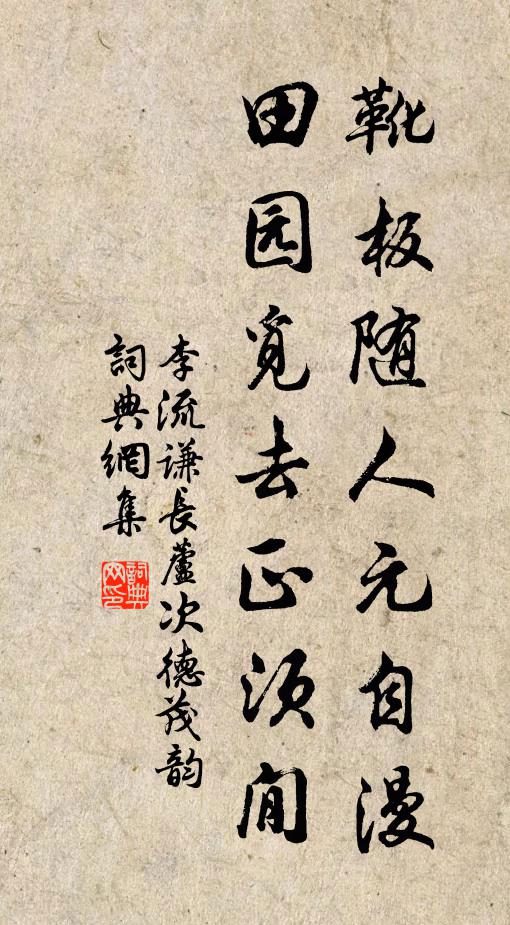 靴板随人元自漫
田园觅去正须闲
李流谦長蘆次德茂韵
詞典網集
詞典网印